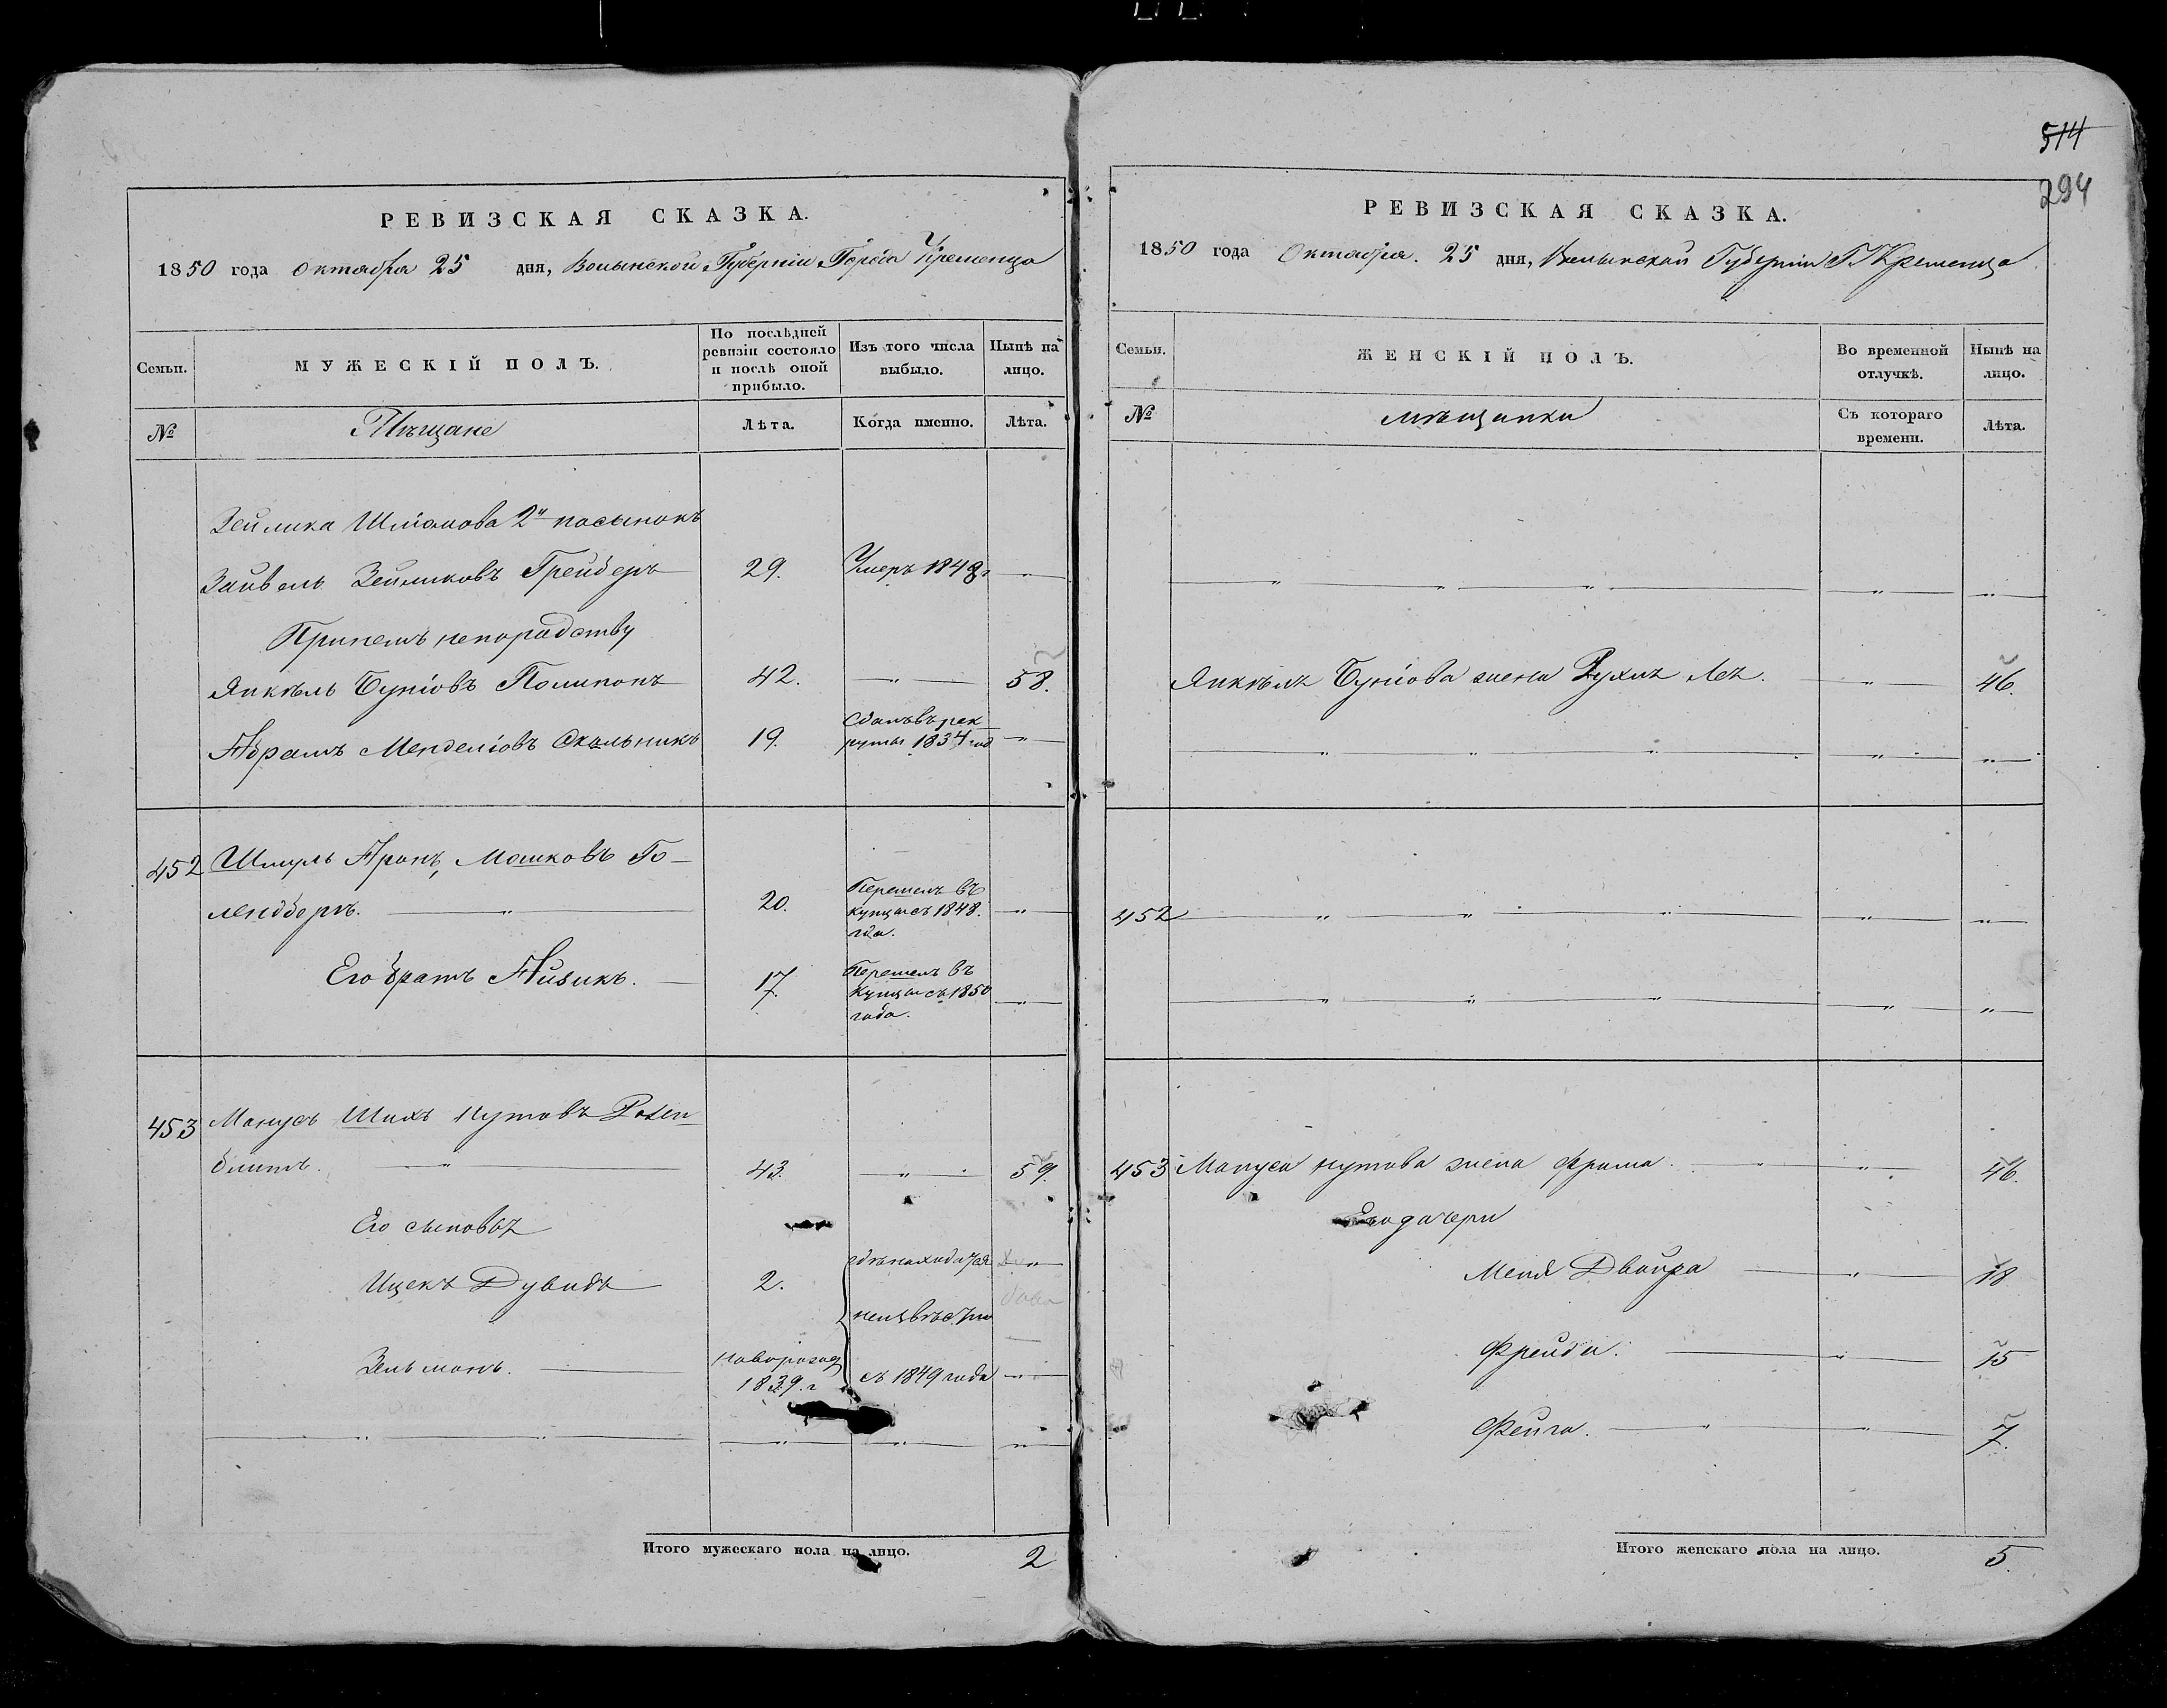 514
294
РЕВИЗСКАЯ СКАЗКА.
1850 года октября 25 дня, Волынской Губерніи Города Кременца
Семьи. МУЖЕСКІЙ ПОЛЪ. По послѣдней ревизіи состояло и послѣ оной прибыло. Изъ того числа выбыло. Нынѣ на лицо.
№ Мѣщане Лѣта. Когда именно. Лѣта.
Зейлика Шліомова 2й пасынокъ
Зайвель Зейликовъ Грейберъ 29. Умеръ 1848 г
Принемъ непородству
Янкель Буніовъ Полинонъ 42. — 58.
Абрамъ Менделіовъ Скальникъ 19. Сданъ въ рек
руты 1834 год
452 Шмуль Аронъ, Мошковъ Го-
лендберъ. 20. Перешелъ въ
купцы съ 1848.
года.
Его братъ Айзикъ. 17. Перешелъ въ
купцы съ 1850
года.
453 Манусъ Шахъ Нутовъ Розен
блитъ. 43. 59.
Его сыновья
Ицекъ Дувидъ 2. гдѣ находится
неизвѣстно
Зельманъ. новорожд
1839. г съ 1849 года
Итого мужескаго пола на лицо. 2
РЕВИЗСКАЯ СКАЗКА.
1850 года Октября. 25 дня, Волынской Губерніи Г. Кременца
Семьи. ЖЕНСКІЙ ПОЛЪ. Во временной отлучкѣ. Нынѣ на лицо.
№ мѣщанки Съ котораго времени. Лѣта.
Янкеля Буніова жена Рухля Лея. 46.
452
453 Мануса Нутова жена Фрима. 46.
Его дочери
Меня Двойра 18
Фрейда. 15
Фейга. 7.
Итого женскаго пола на лицо. 5.